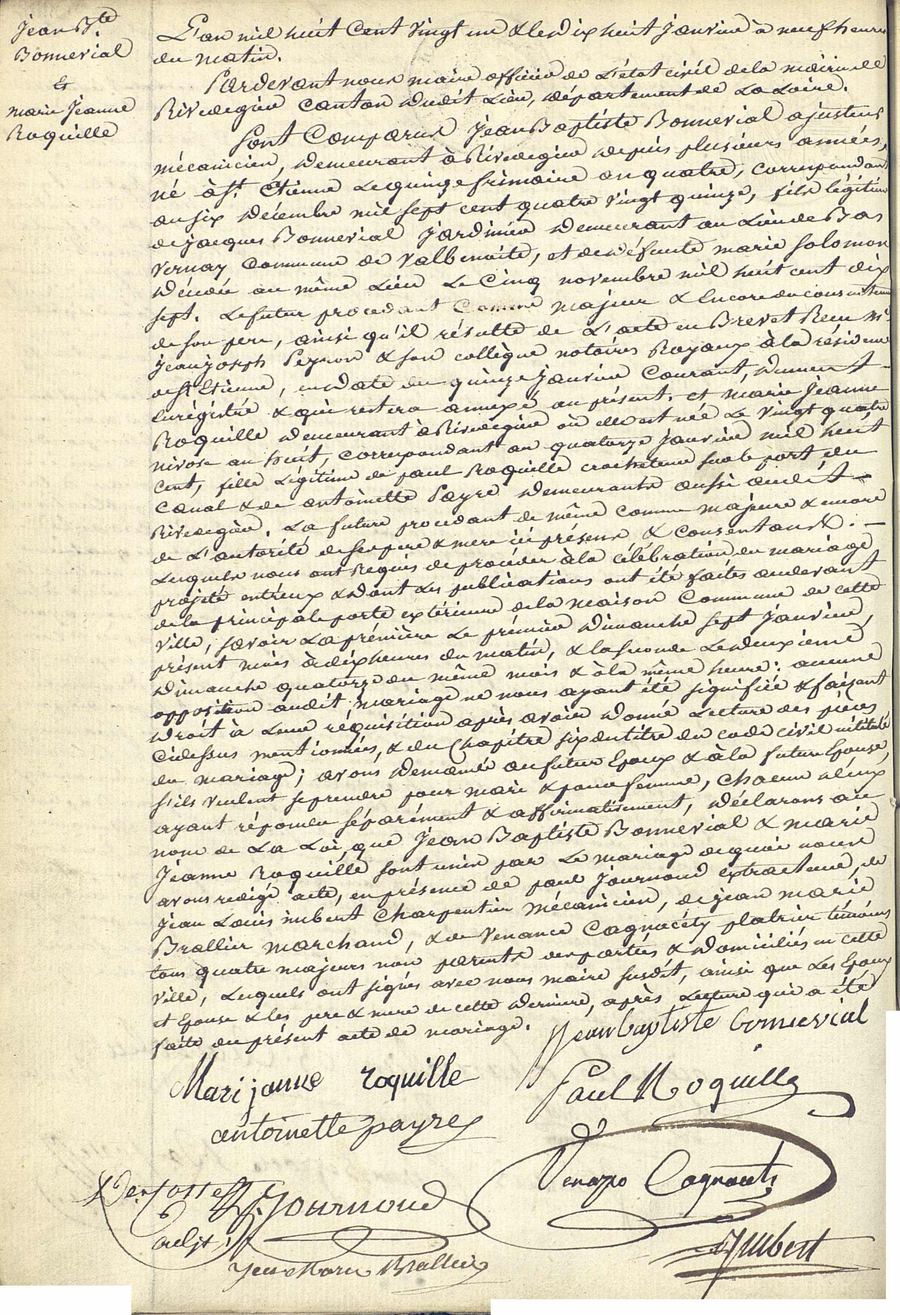 Jean Bte
Bonnevial
&
marie Jeanne
Roquille
L'an mil huit Cent vingt un & le dix huit Janvier à neuf heures
du matin.
Pardevant nous maire officier de L'état civil de la mairie de
Rivedegier Canton dudit Lieu, département de La Loire.
Sont Comparus Jean Baptiste Bonnevial ajusteur
mécanicien, demeurant à Rivedegier depuis plusieurs années,
né à St. Étienne Le quinze frimaire an quatre, correspondant
au six décembre mil sept cent quatre vingt quinze, fils légitime
de Jacques Bonnevial Jardinier demeurant au Lieu de Bas
vernay Commune de Valbenoite, et de défunte marie Solomon
décédée au même Lieu Le Cinq novembre mil huit cent dix
sept. Le futur procédant Comme majeur & Encore du consentement
de son pere, ainsi qu'il résulte de L'acte en Brevet Recu Me.
Jean Joseph Peyron & son collègue notaires Royaux à la résidence
de St Etienne, en date du quinze Janvier Courant, dument
Enregistré & qui restera annexé au présent. et marie Jeanne
Roquille demeurant à Rivedegier où elle est née Le vingt quatre
nivose an huit, correspondant au quatorze janvier mil huit
cent, fille Légitime de paul Roquille crocheteur sur le port du
Canal & de antoinette Payre demeurants aussi audit
Rivedegier. La future procédant de même comme majeure & encore
de L'autorité de ses pere & mere ici présens & consentans.
Lesquels nous ont Requis de procéder à la célébration du mariage
projeté entr'eux & dont Les publications ont été faites audevant
de la principale porte extérieure de la maison Commune de cette
ville, savoir La première Le premier dimanche sept Janvier
présent mois à dix heures du matin, & la seconde Le deuxième
dimanche quatorze du même mois & à la même heure: aucune
opposition audit mariage ne nous ayant été signifiée & faisant
droit à Leur réquisition après avoir donné Lecture des pièces
Cidessus mentionnées, & du Chapitre six du titre du code civil intitulé
du mariage; avons demandé au futur Epoux & à la future Epouse,
s'ils veulent se prendre pour mari & pour femme, chacun d'eux
ayant répondu séparément & affirmativement, déclarons au
nom de La Loi que Jean Baptiste Bonnevial & marie
Jeanne Roquille sont unis par Le mariage dequoi nous
avons redigé acte, en présence de paul Journoud extracteur, de
Jean Louis imbert Charpentier mécanicien, de jean marie
Brallier marchand, & de Venance Cagnacéty platrier témoins
tous quatre majeurs non parents des parties & domiciliés en cette
ville, Lesquels ont signés avec nous maire susdit, ainsi que Les Epoux
et Epouse & les pere & mere de cette dernière, après Lecture qui a été
faite du présent acte de mariage.
Jean baptiste bonnevial
Marijanne roquille
Paul Roquille
antoinette payre
P. Journoud
adjt
Jean Marie Brallier
Imbert